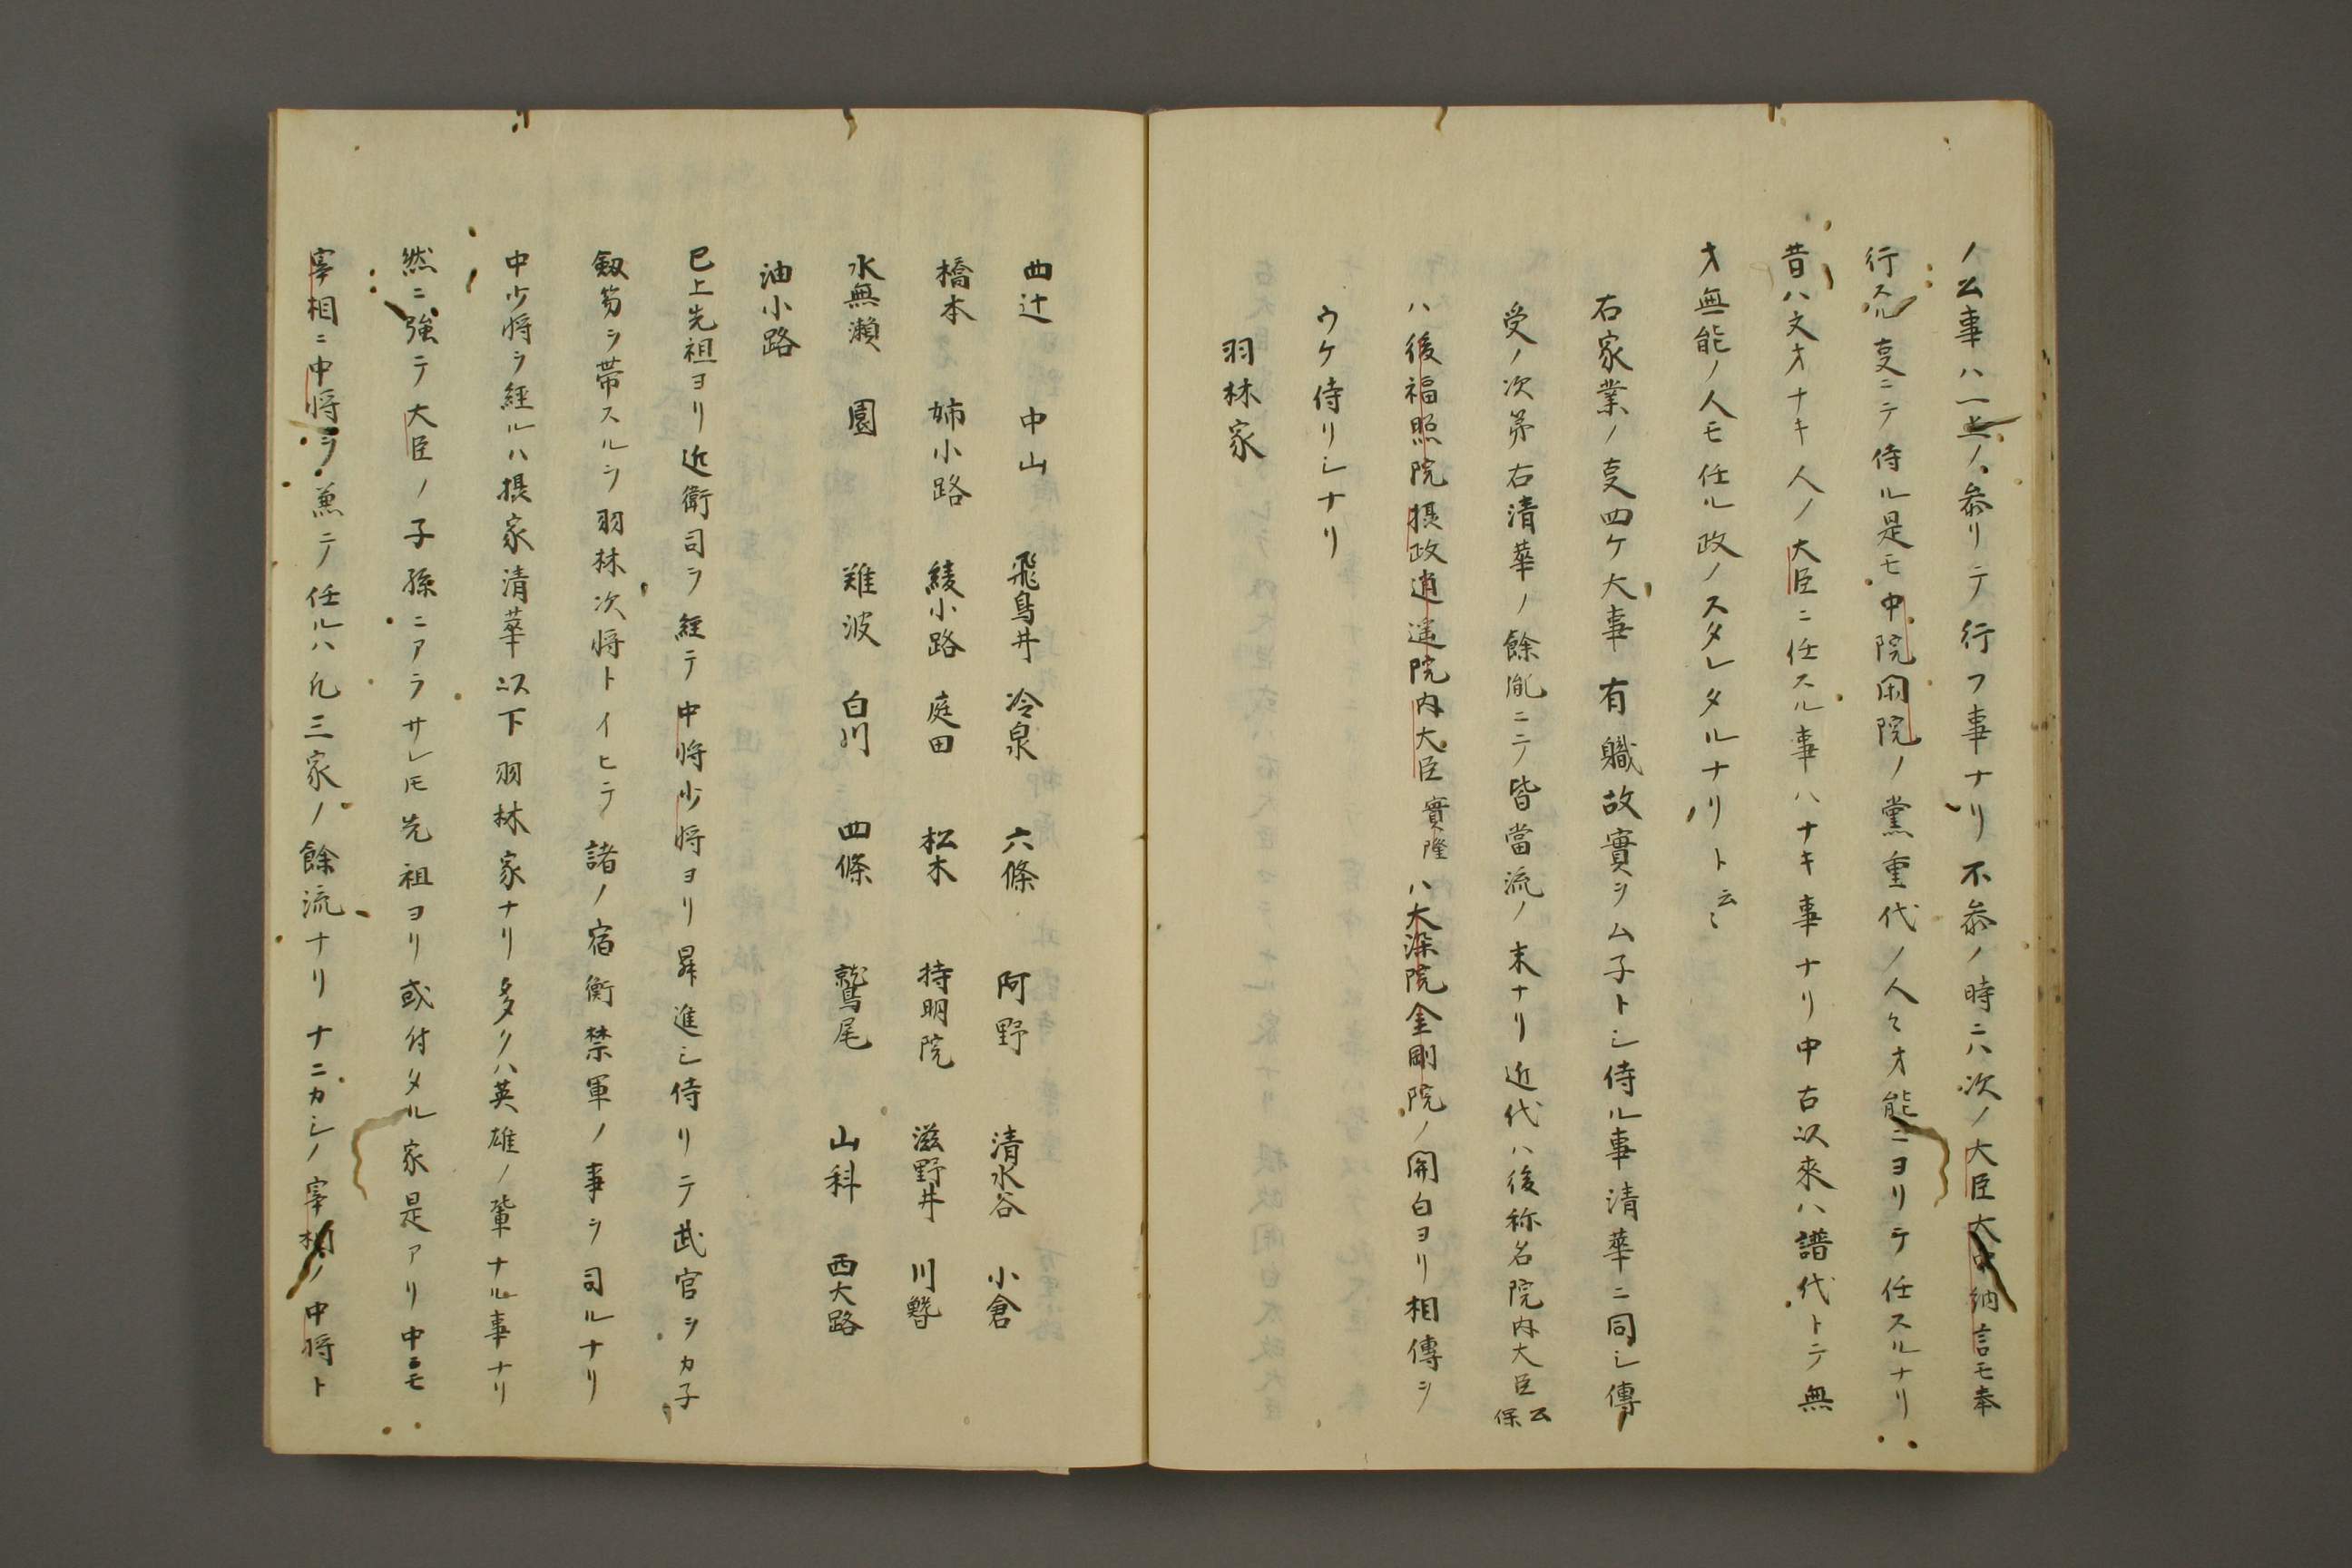 ノ公事ハ一上ノ参リテ行フ事ナリ不参ノ時ニハ次ノ大臣大中納言モ奉
行スル㕝ニテ侍ル是モ中院閑院ノ黨重代ノ人々才能ニヨリテ任スルナリ
昔ハ文才ナキ人ノ大臣ニ任スル事ハナキ事ナリ中古以來ハ譜代トテ無
才無能ノ人モ任ル政ノスタレタルナリト云々
右家業ノ㕝四ケ大事有職故實ヲムネトシ侍ル事清華ニ同シ傳
受ノ次第右清華ノ餘胤ニテ皆當流ノ末ナリ近代ハ後称名院内大臣公保
ハ後福照院摂政逍遥院内大臣實隆ハ大染院金剛院ノ関白ヨリ相傳ヲ
ウケ侍リシナリ
羽林家
四辻 中山 飛鳥井 冷泉 六條 阿野 清水谷 小倉
橋本 姉小路 綾小路 庭田 松木 持明院 滋野井 川鰭
水無瀬 園 難波 白川 四條 鷲尾 山科 西大路
油小路
已上先祖ヨリ近衛司ヲ経テ中将少将ヨリ昇進シ侍リテ武官ヲカ子
劔笏ヲ帯スルヲ羽林次将トイヒテ諸ノ宿衛禁軍ノ事ヲ司ルナリ
中少将ヲ経ルハ摂家清華以下羽林家ナリ多クハ英雄ノ輩ナル事ナリ
然ニ強テ大臣ノ子孫ニアラサレ𪜈先祖ヨリ或付タル家是アリ中ニモ
宰相ニ中将ヲ兼テ任ルハ凡三家ノ餘流ナリナニカシノ宰相ノ中将ト